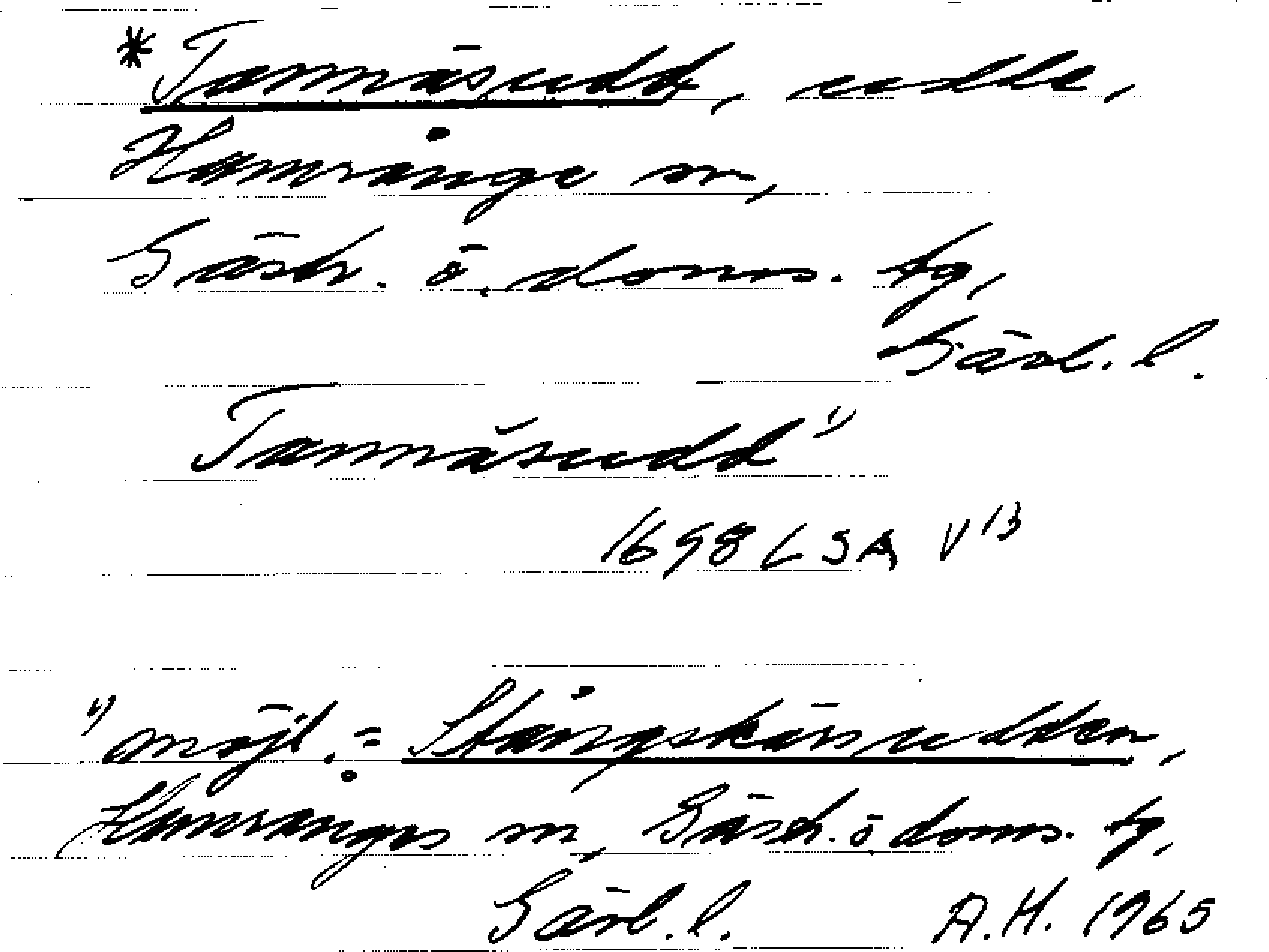 *Tannäsudd, udde,
Hamrånge sn,
Gästr. ö. doms. tg,
Gävl. l.
Tannäsudd 1)
1698 LSA V 13
1) möjl. = Stångskärsudden,
Hamrånges sn, Gästr. ö. doms. tg,
Gävl. l. A.H. 1965